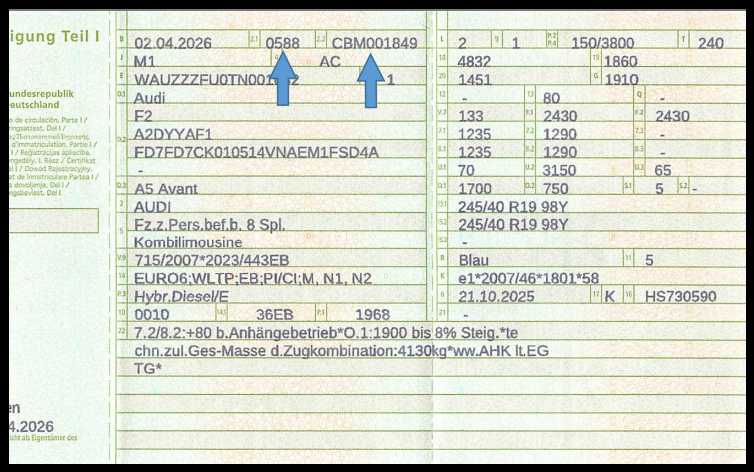 igung Teil I
B 02.04.2026 2.1 0588 2.2 CBM001849
L 2 9 1 P.2 P.4 150/3800 T 240
J M1 4 AC
18 4832 19 1860
E WAUZZZFU0TN001 2 1
20 1451 G 1910
undesrepublik
eutschland
D.1 Audi
12 - 13 80 Q -
F2
V.7 133 F.1 2430 F.2 2430
D.2 A2DYYAF1
7.1 1235 7.2 1290 7.3 -
FD7FD7CK010514VNAEM1FSD4A
8.1 1235 8.2 1290 8.3 -
-
U.1 70 U.2 3150 U.3 65
D.3 A5 Avant
O.1 1700 O.2 750 S.1 5 S.2 -
2 AUDI
15.1 245/40 R19 98Y
5 Fz.z.Pers.bef.b. 8 Spl.
15.2 245/40 R19 98Y
Kombilimousine
15.3 -
V.9 715/2007*2023/443EB
R Blau 11 5
14 EURO6;WLTP;EB;PI/CI;M, N1, N2
K e1*2007/46*1801*58
P.3 Hybr.Diesel/E
6 21.10.2025 17 K 16 HS730590
10 0010 14.1 36EB P.1 1968
21 -
22 7.2/8.2:+80 b.Anhängebetrieb*O.1:1900 bis 8% Steig.*te
chn.zul.Ges-Masse d.Zugkombination:4130kg*ww.AHK lt.EG
TG*
en
4.2026
icht als Eigentümer des